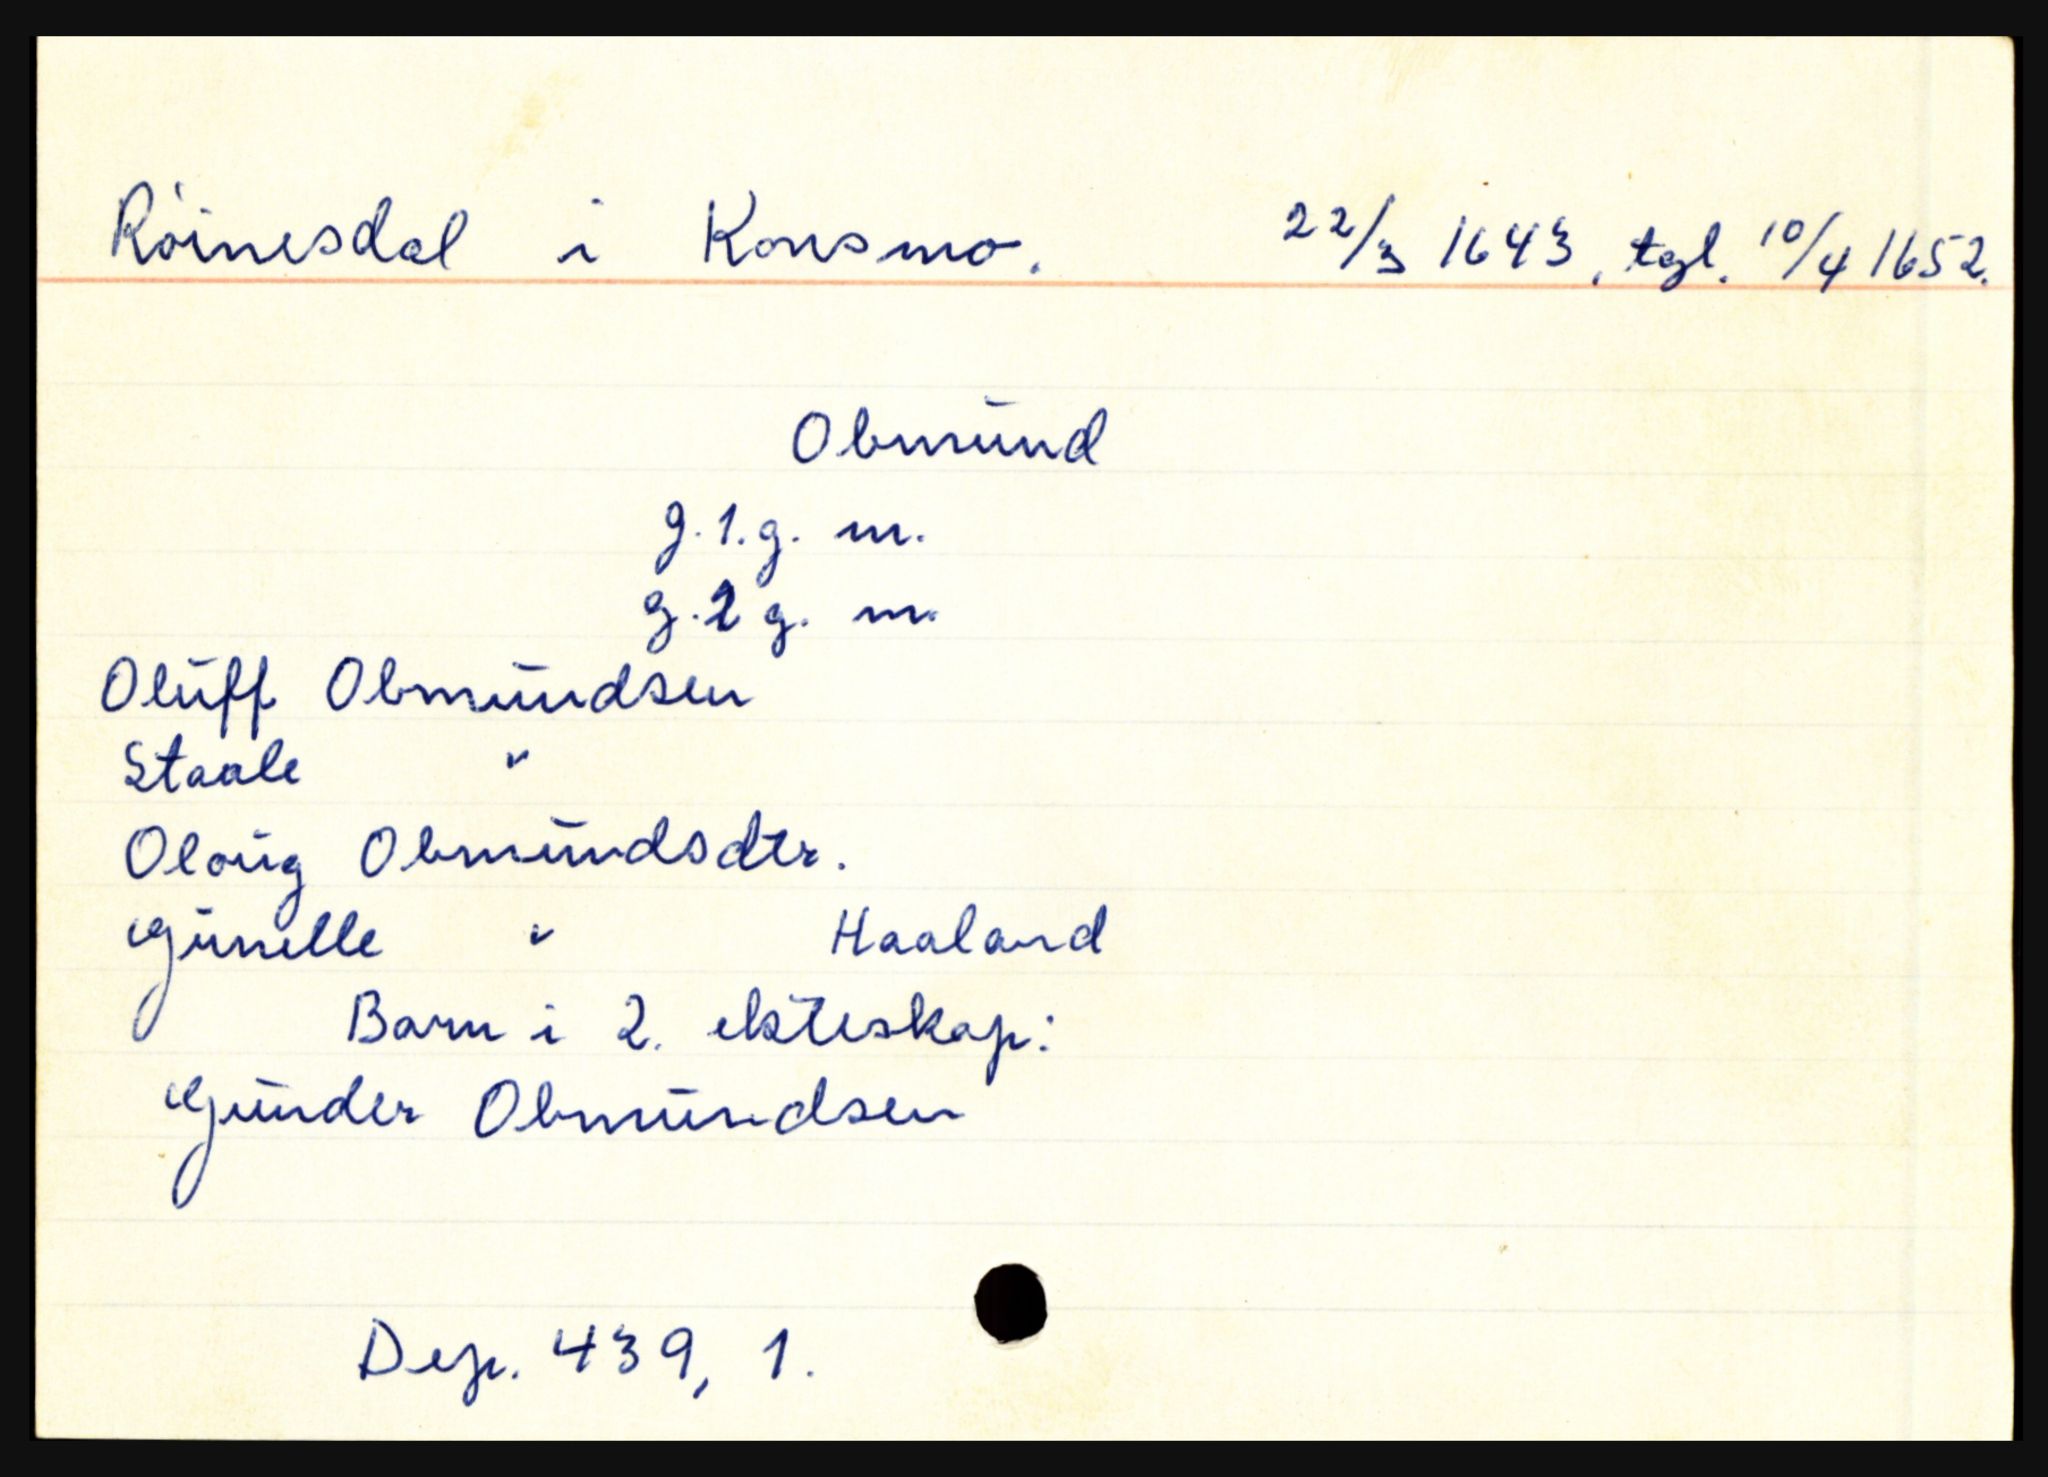 Röinesdal i Konsmo. 22/3 1643, tgl. 10/4 1652.
Obmund
g.1.g. m.
g.2 g. m.
Oluff Obmundsen
Staale "
Oloug Obmundsdtr.
Gunelle " Haaland
Barn i 2. ekteskap:
Gunder Obmundsen
Dep. 439, 1.